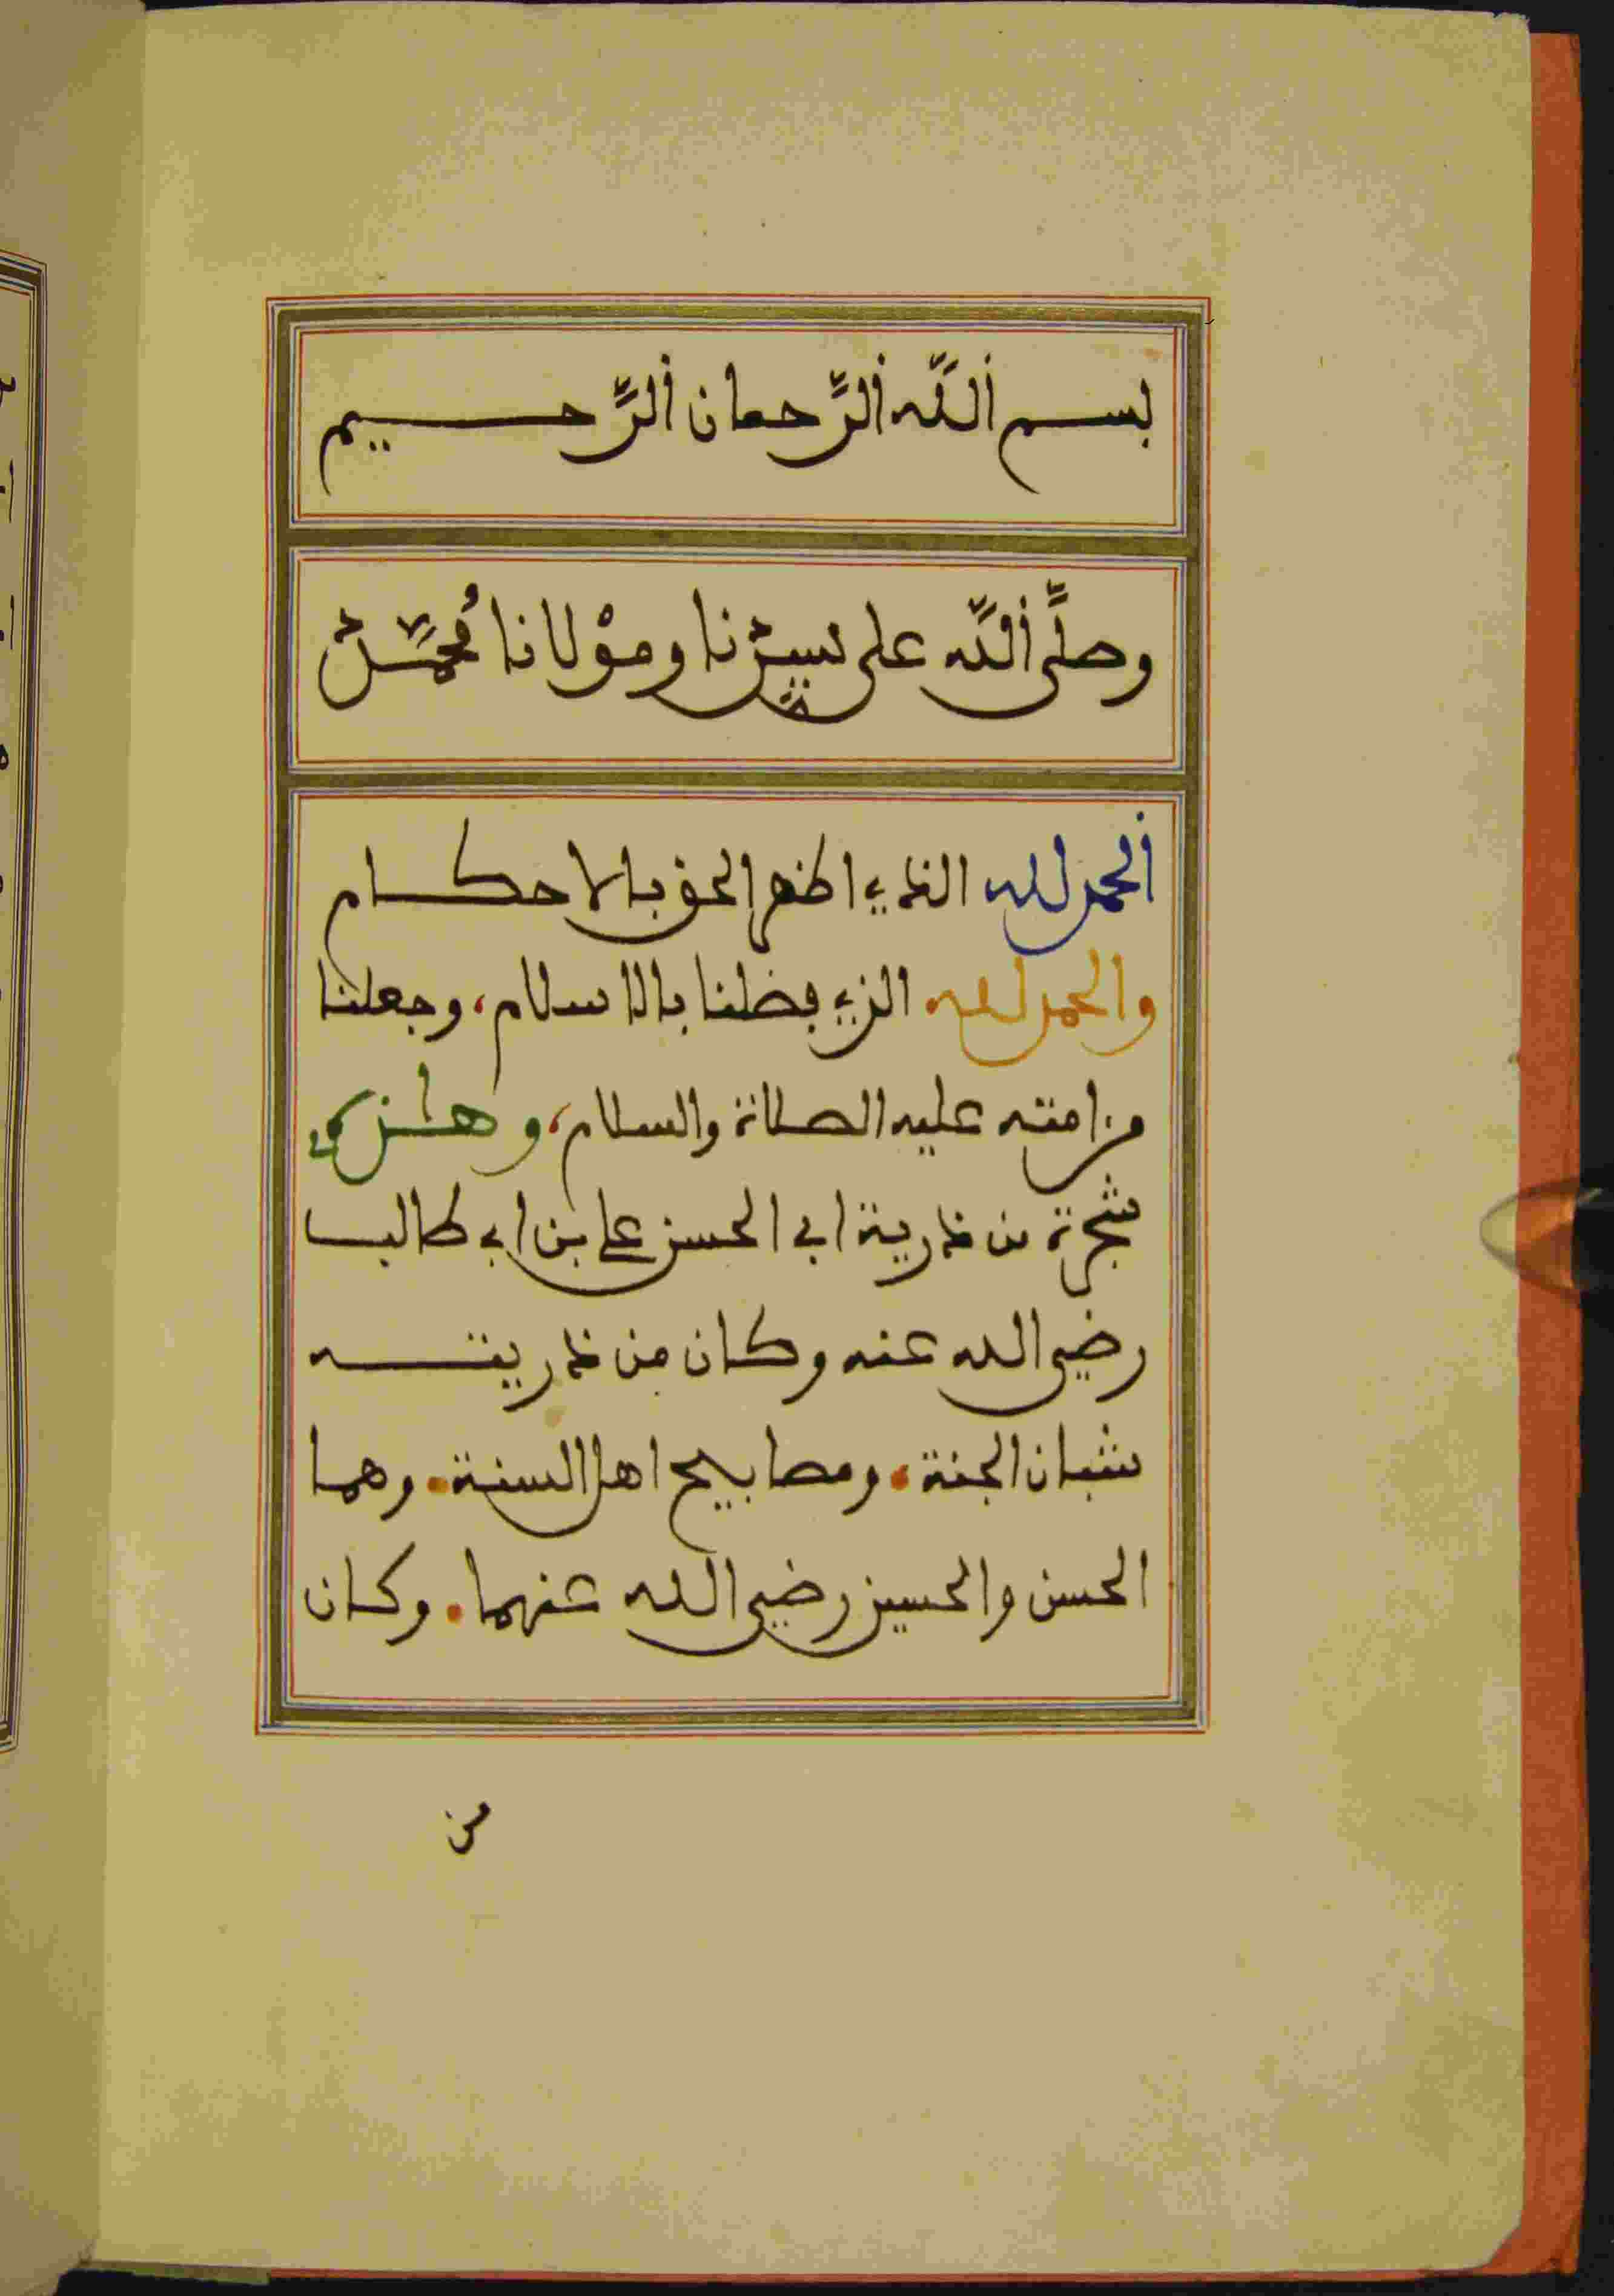 بسم ٱللَّه ٱلرَّحمان ٱلرَّحيم
وصلَّى ٱللَّه على سيدنا وموْلانا مُحمَّد
ٱلحمد لله الذي اظهر الحق بالاحكام
والحمد لله الذي فضلنا بالاسلام، وجعلنا
من امته عليه الصلاة والسلام، وهذه
شجرة من ذرية ابي الحسن علي بن ابي طالب
رضي الله عنه وكان من ذريته
شبان الجنة، ومصابيح اهل السنة. وهما
الحسن والحسين رضي الله عنهما. وكان
من